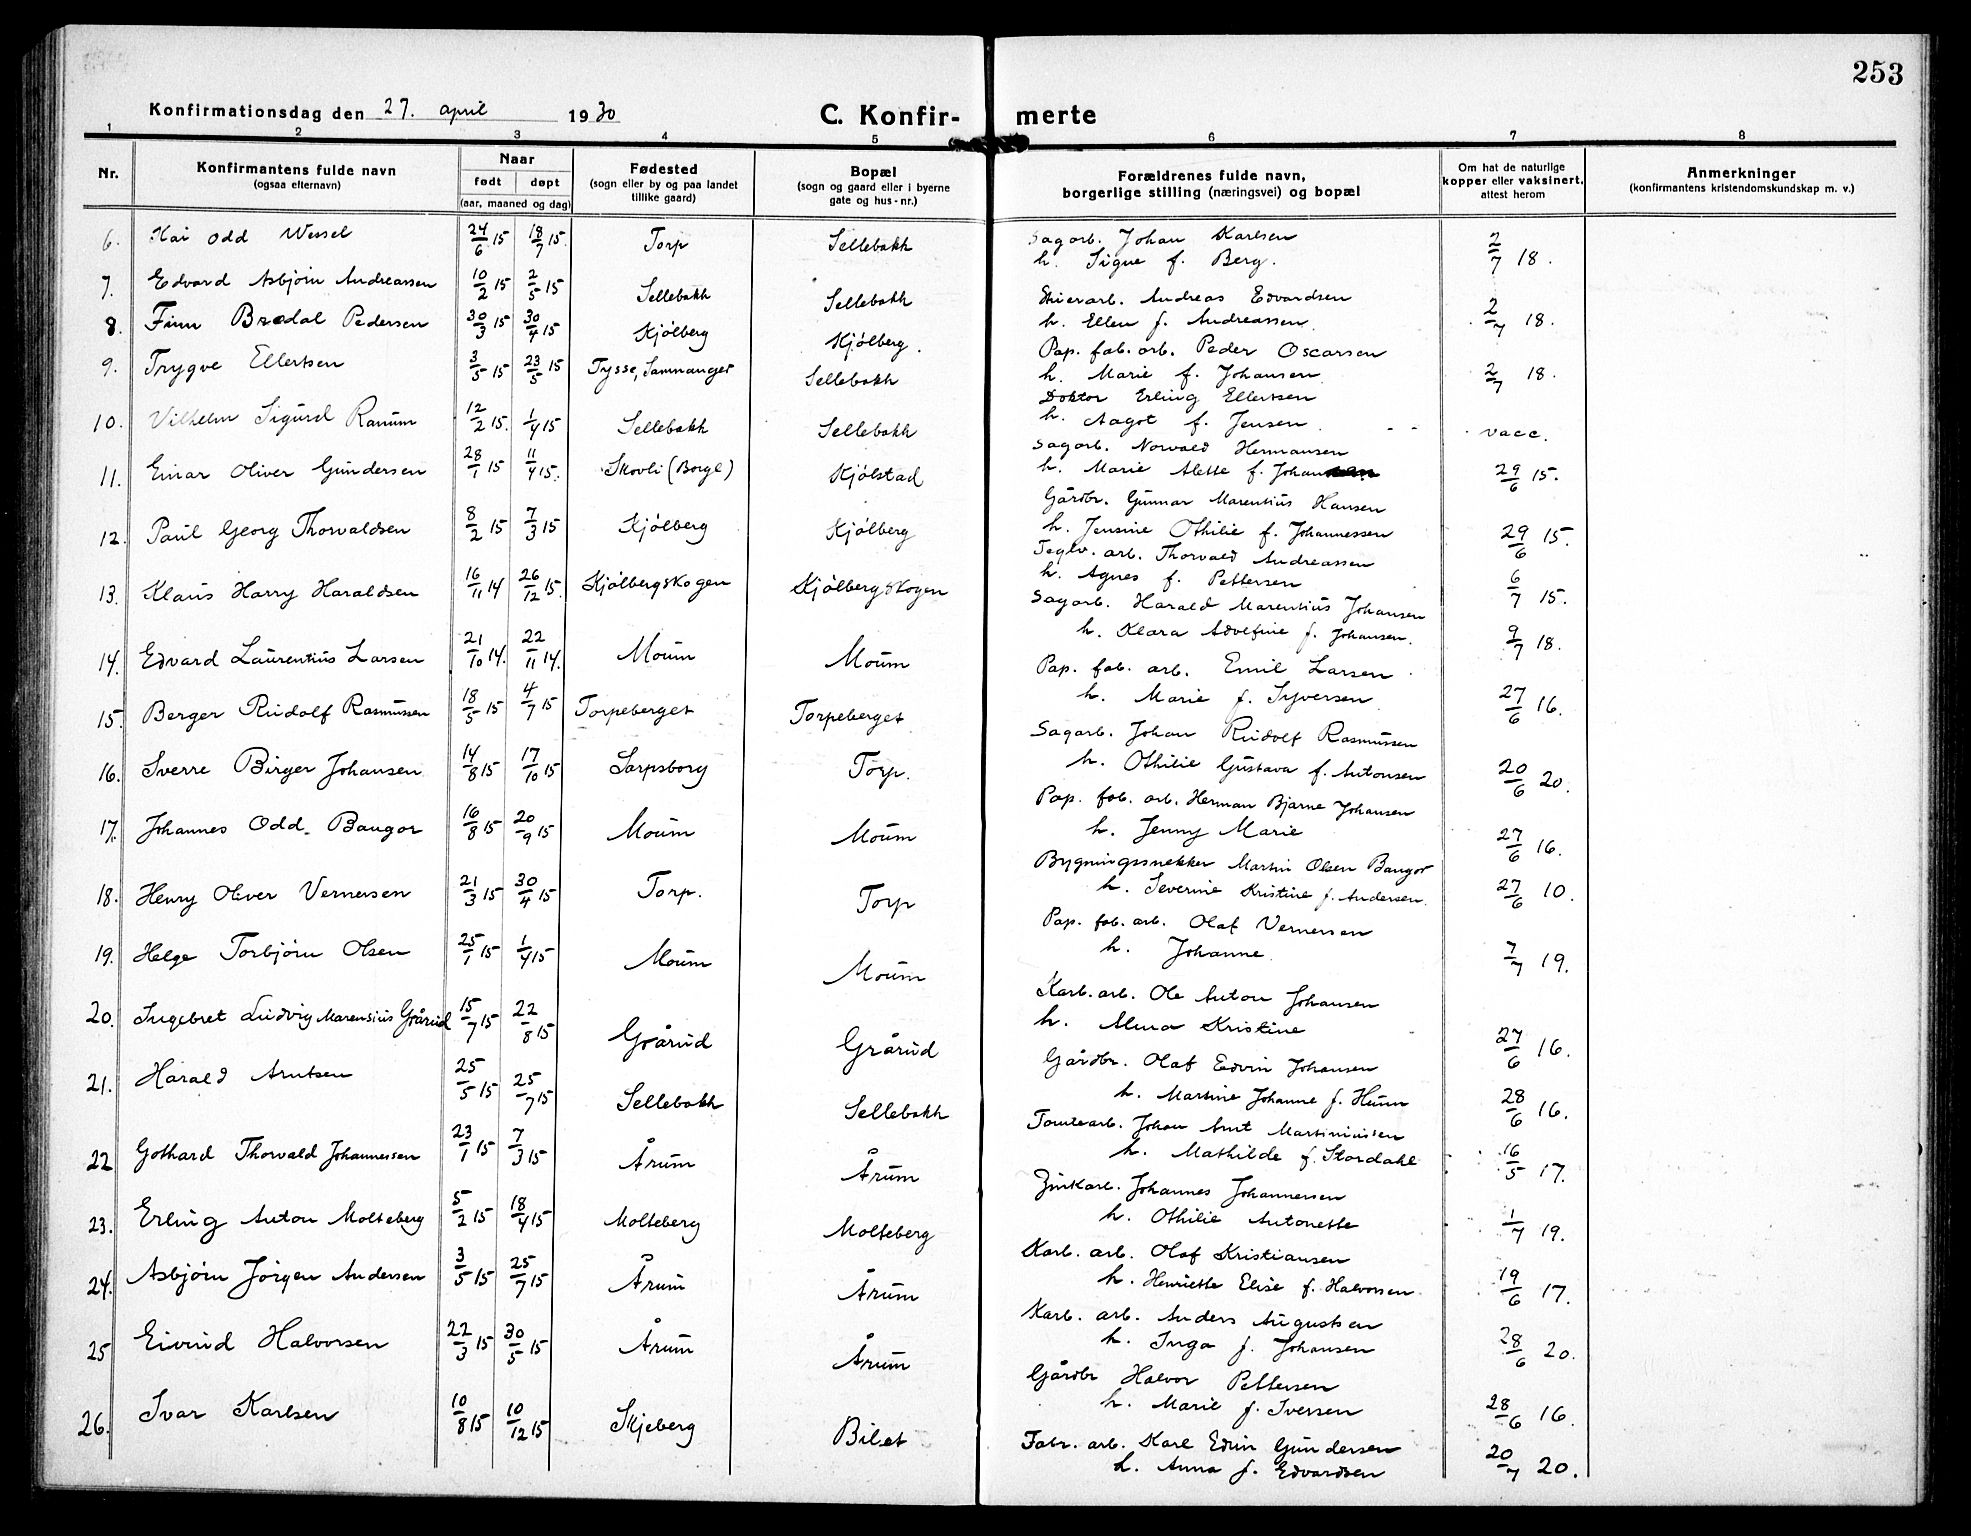 253
Konfirmationsdag den 27. april 1930
C. Konfirmerte
1 2 3 4 5 6 7 8
Nr.
Konfirmantens fulde navn
(ogsaa efternavn)
Naar
født døpt
(aar, maaned og dag)
Fødested
(sogn eller by og paa landet
tillike gaard)
Bopæl
(sogn og gaard eller i byerne
gate og hus-nr.)
Forældrenes fulde navn,
borgerlige stilling (næringsvei) og bopæl
Om hat de naturlige
kopper eller vaksinert,
attest herom
Anmerkninger
(konfirmantens kristendomskundskap m. v.)
6. Kai Odd Wessel 24/6 15 18/7 15. Torp Sellebakk Sagarb. Johan Karlsen
h. Signe f. Berg. 2/7 18.
7. Edvard Asbjørn Andreassen 10/2 15 2/5 15 Sellebakk Sellebakk Skierarb. Andreas Edvardsen
h. Ellen f. Andreassen. 2/7 18.
8. Finn Brødal Pedersen 30/3 15 30/4 15 Kjølberg Kjølberg. Pap. fab. arb. Peder Oscarsen
h. Marie f. Johansen 2/7 18.
9. Trygve Ellertsen 3/5 15 23/5 15 Tysse, Samnanger Sellebakk Doktor Erling Ellertsen
h. Aagot f. Jensen. vacc.
10. Vilhelm Sigurd Ranum 12/2 15. 1/4 15 Sellebakk Sellebakk Sagarb. Norvald Hermansen
h. Marie Alette f. Johansen 29/6 15.
11. Einar Oliver Gundersen 28/1 15 11/4 15. Skovli (Borge) Kjølstad Gårdbr. Gunnar Marentius Hansen
h. Jensine Othilie f. Johannessen 29/6 15.
12. Paul Georg Thorvaldsen 8/2 15 7/3 15 Kjølberg Kjølberg Teglv. arb. Thorvald Andreassen
h. Agnes f. Pettersen 6/7 15.
13. Klaus Harry Haraldsen 16/11 14 26/12 15. Kjølbergskogen Kjølbergskogen Sagarb. Harald Marentius Johansen
h. Klara Adolfine f. Johansen. 9/7 18.
14. Edvard Laurentius Larsen 21/10 14. 22/11 14. Moum Moum Pap. fab. arb. Emil Larsen
h. Marie f. Syversen 27/6 16.
15. Berger Rudolf Rasmussen 18/5 15 4/7 15 Torpeberget Torpeberget Sagarb. Johan Rudolf Rasmussen
h. Othilie Gustava f. Antonsen 20/6 20.
16. Sverre Birger Johansen 14/8 15 17/10 15 Sarpsborg Torp. Pap. fab. arb. Herman Bjarne Johansen
h. Jenny Marie 27/6 16.
17. Johannes Odd Baugor 16/8 15 20/9 15 Moum Moum Bygningssnekker Martin Olsen Baugor
h. Severine Kristine f. Andersen. 27/6 10.
18. Henry Oliver Vernersen 21/3 15 30/4 15 Torp. Torp Pap. fab. arb. Olaf Vernersen
h. Johanne. 7/7 19.
19. Helge Torbjørn Olsen 25/1 15 1/4 15 Moum Moum Karb. arb. Ole Anton Johansen
h. Alma Kristine 27/6 16.
20. Ingebret Ludvig Marensius Grårud 15/7 15 22/8 15 Grårud Grårud Gårdbr. Olaf Edvin Johansen
h. Martine Johanne f. Hunn 28/6 16.
21. Harald Arntsen 25/5 15 25/7 15 Sellebakk Sellebakk Tomtearb. Johan Arnt Martiniussen
h. Mathilde f. Stordahl 16/5 17.
22 Gothard Thorvald Johannessen 23/1 15 7/3 15 Årum Årum Zinkarb. Johannes Johannessen
h. Othilie Antonette 1/7 19.
23. Erling Anton Molteberg 5/2 15 18/4 15 Molteberg Molteberg Karb. arb. Olaf Kristiansen
h. Henriette Elise f. Halvorsen. 19/6 17.
24. Asbjørn Jørgen Andersen 3/5 15 25/7 15 Årum Årum Karb. arb. Anders Augustsen
h. Inga f. Johansen 28/6 20.
25 Eivind Halvorsen 22/3 15 30/5 15 Årum Årum Gårdbr Halvor Pettersen
h. Marie f. Iversen 28/6 16.
26. Ivar Karlsen 10/8 15 10/12 15 Skjeberg Bilet Fabr. arb. Karl Edvin Gundersen
h. Anna f. Edvardsen 20/7 20.